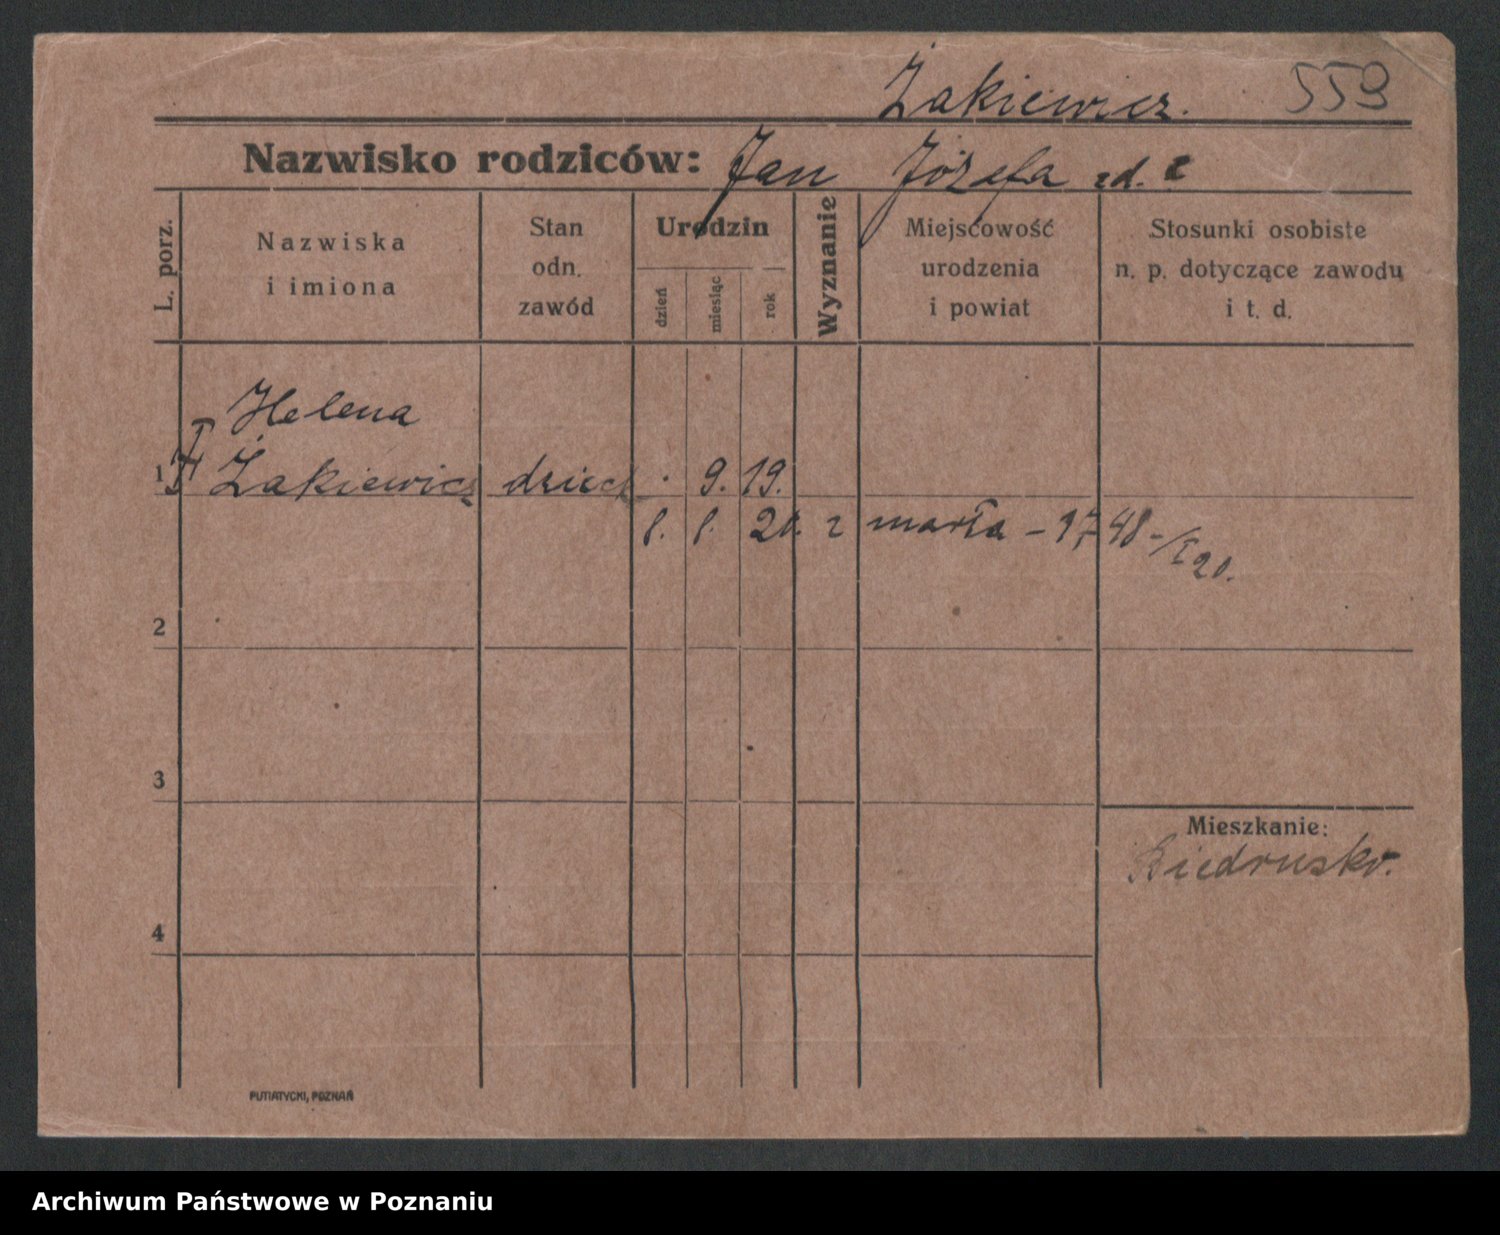 Żakiewicz. 559
Nazwisko rodziców: Jan Józefa zd. z
L. porz.
Nazwiska
i imiona
Stan
odn.
zawód
Urodzin
dzień
miesiąc
rok
Wyznanie
Miejscowość
urodzenia
i powiat
Stosunki osobiste
n. p. dotyczące zawodu
i t. d.
Helena
1 Żakiewicz dzieck . 9. 19.
8. 1. 20. zmarła - 1748 - /I 20.
2
3
Mieszkanie:
Biedrusko.
4
PUTIATYCKI, POZNAŃ
Archiwum Państwowe w Poznaniu